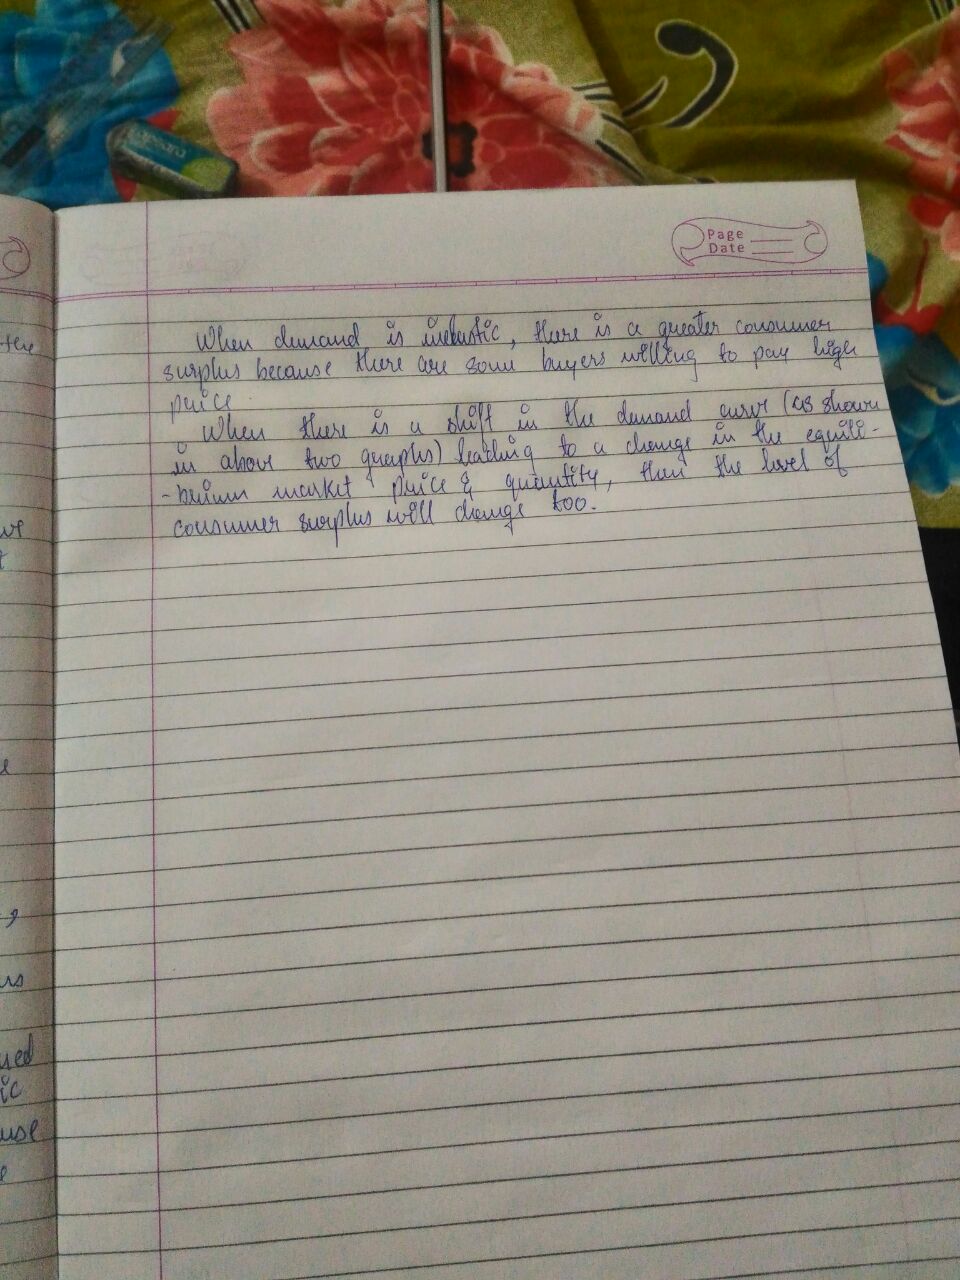 Page
Date
When demand is inelastic, there is a greater consumer
surplus because there are some buyers willing to pay high
price
When there is a shift in the demand curve (as shown
in above two graphs) leading to a change in the equili-
-brium market price & quantity, then the level of
consumer surplus will change too.
the
,
us
ued
ic
use